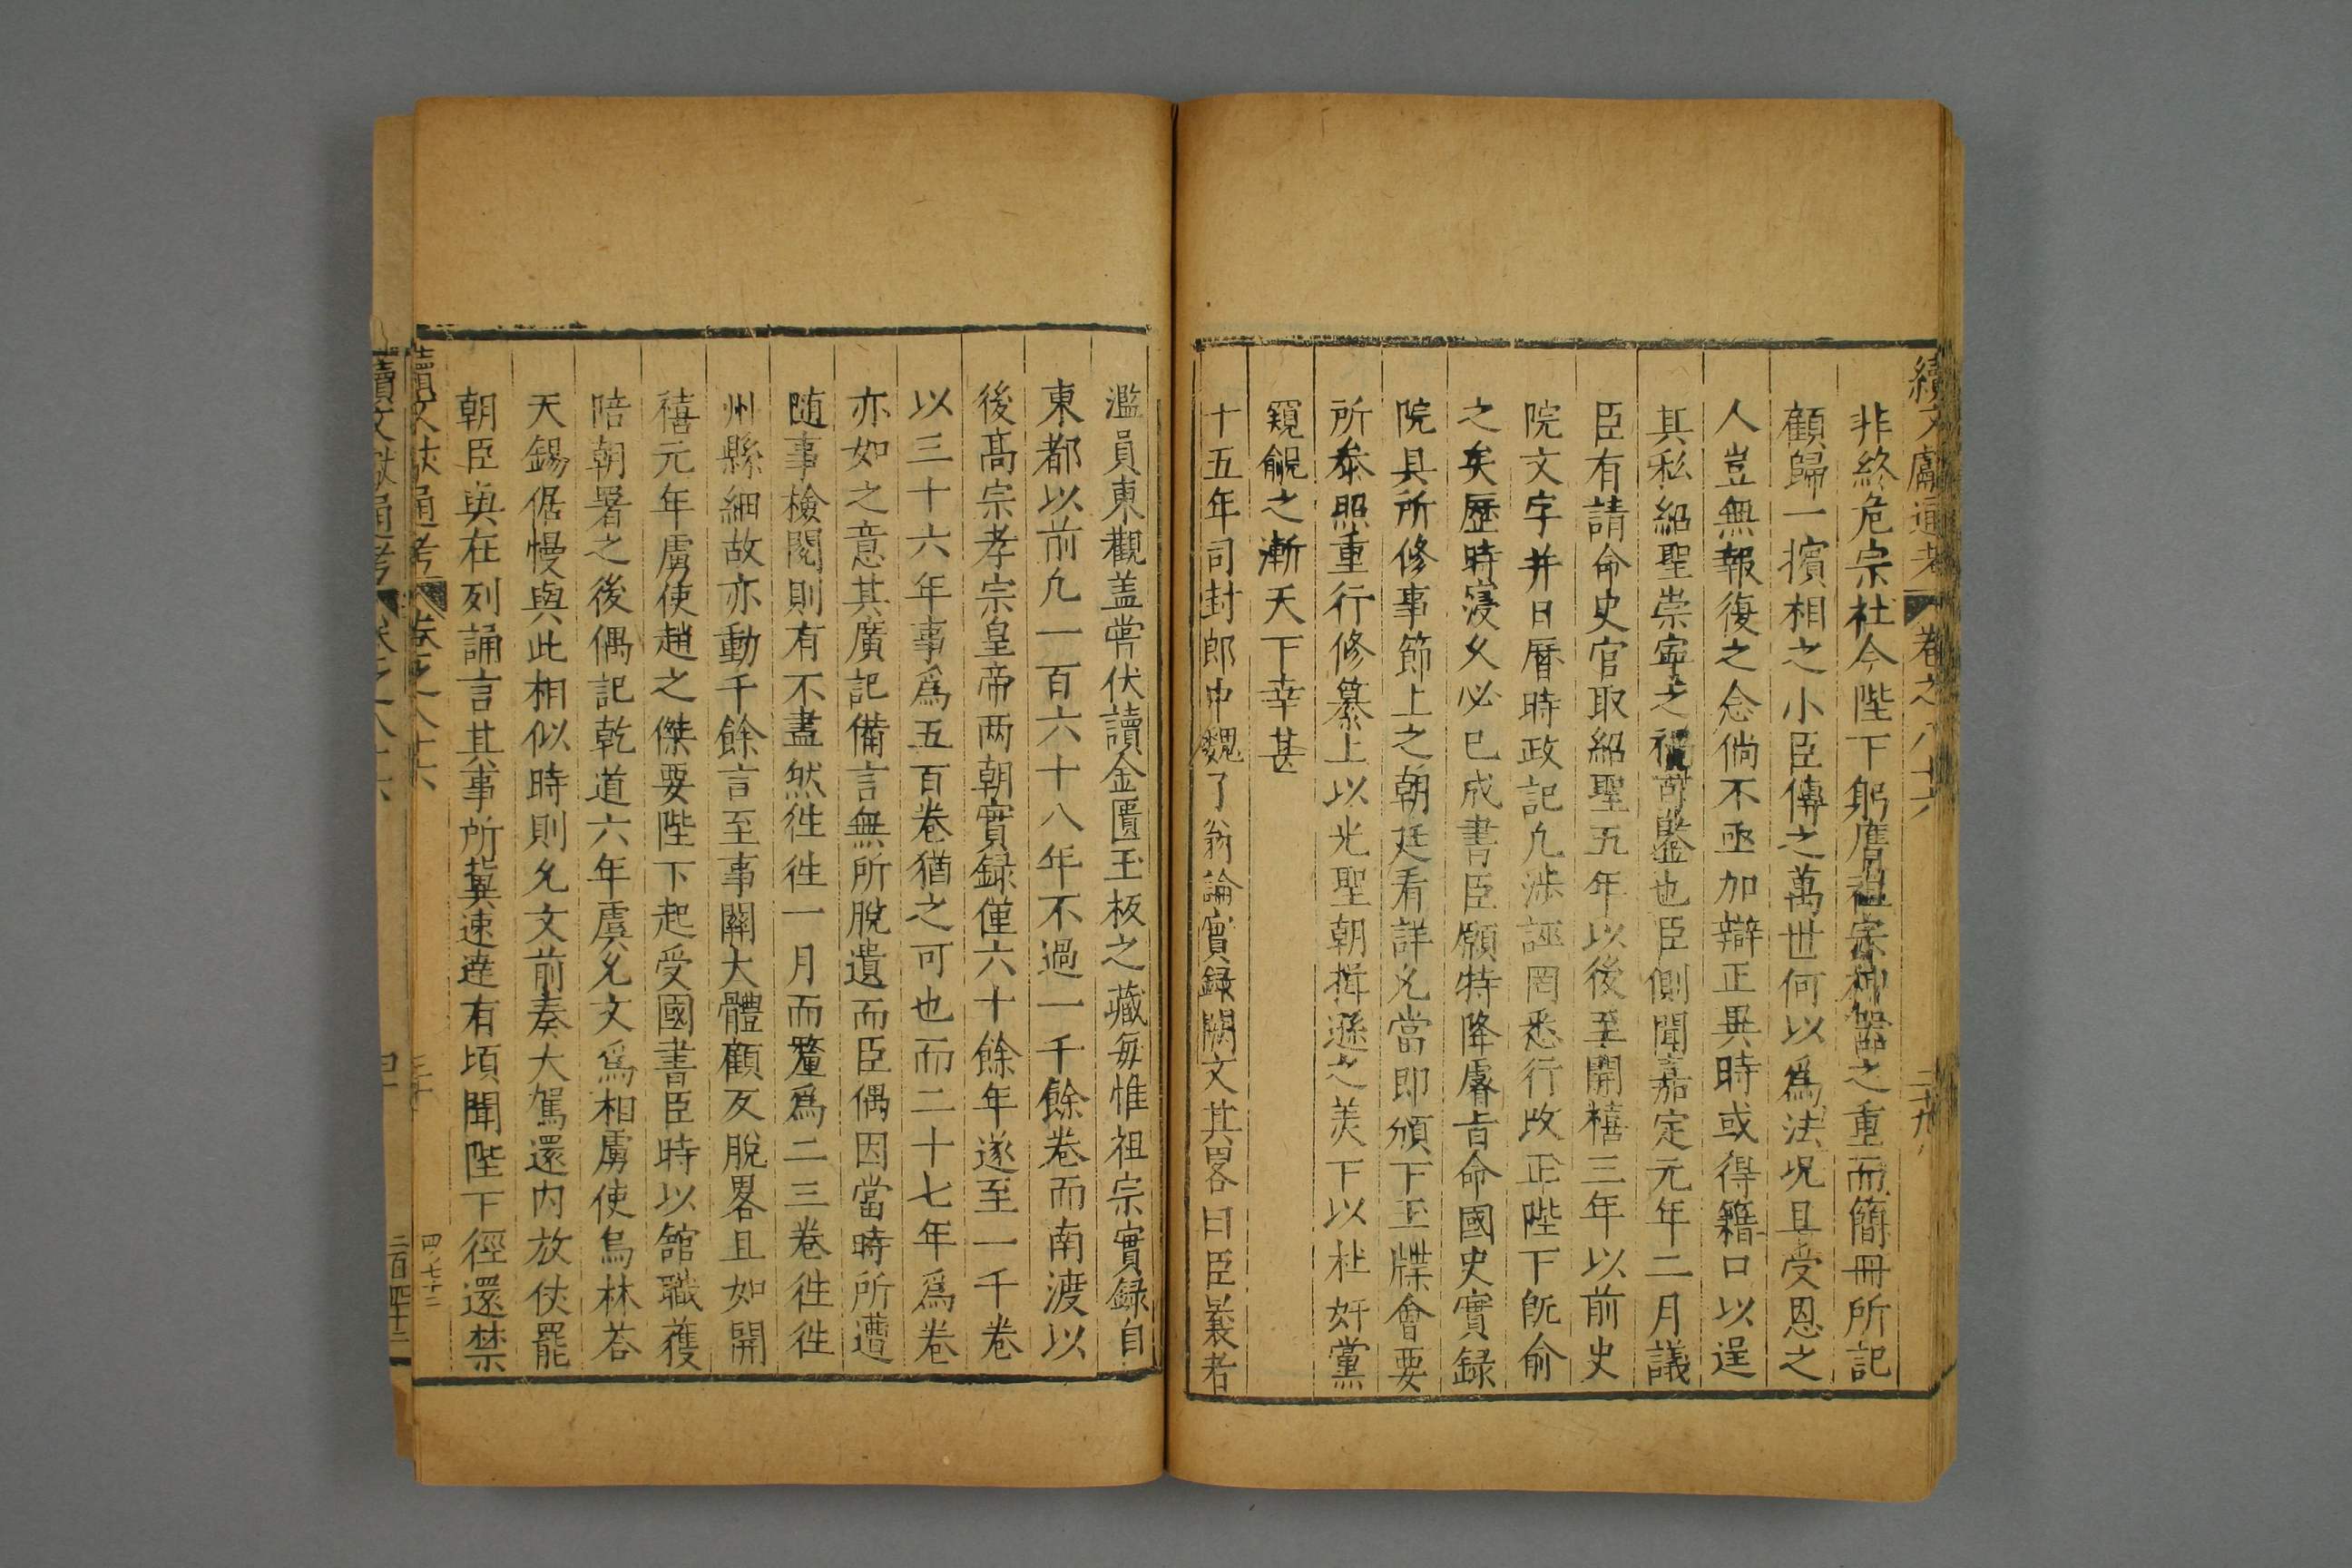 續文獻通考 卷之八十六
非終危宗社今陛下躬膺祖宗神器之重而簡冊所記
顧歸一擯相之小臣傳之萬世何以爲法况且受恩之
人豈無報復之念倘不亟加辯正異時或得籍口以逞
其私紹聖崇寧之禍可鑒也臣側聞嘉定元年二月議
臣有請命史官取紹聖五年以後至開禧三年以前史
院文字并日曆時政記凡涉誣罔悉行改正陛下旣俞
之矣歷時寖久必已成書臣願特降睿旨命國史實録
院具所修事節上之朝廷看詳允當即頒下玉牒會要
所叅照重行修纂上以光聖朝揖遜之美下以杜奸黨
窺覦之漸天下幸甚
十五年司封郎中魏了翁論實録闕文其畧曰臣曩者
濫員東觀盖嘗伏讀金匱玉板之藏每惟祖宗實録自
東都以前凡一百六十八年不過一千餘卷而南渡以
後髙宗孝宗皇帝两朝實録僅六十餘年遂至一千卷
以三十六年事爲五百卷猶之可也而二十七年爲卷
亦如之意其廣記備言無所脫遺而臣偶因當時所遭
随事檢閱則有不盡然徃徃一月而釐爲二三卷徃徃
州縣細故亦動千餘言至事關大體顧反脫畧且如開
禧元年虜使趙之傑要陛下起受國書臣時以舘職獲
陪朝署之後偶記乾道六年虞允文爲相虜使烏林荅
天錫倨慢與此相似時則允文前奏大駕還内放仗罷
朝臣與在列誦言其事所冀速達有頃聞陛下徑還禁
續文獻通考 卷之八十六
四七十二
續文獻通考 卷之八十六